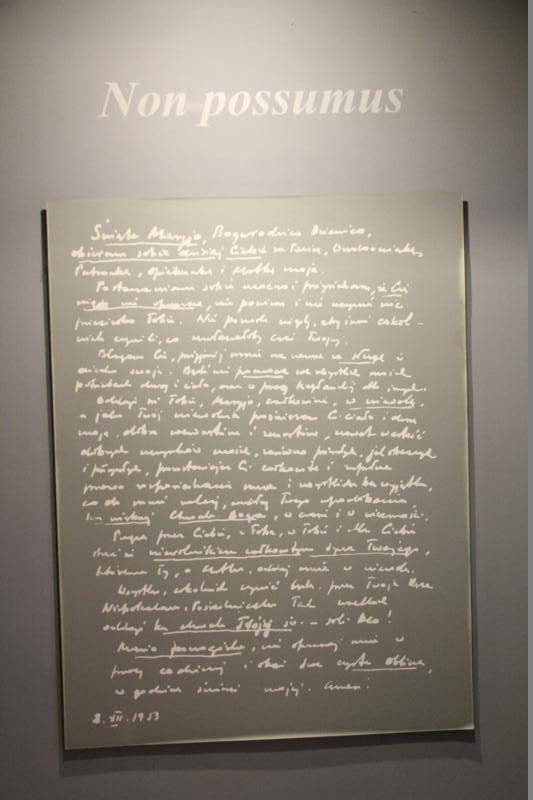 Non possumus
Święta Maryjo, Bogurodzico Dziewico,
obieram sobie dzisiaj Ciebie za Panią, Orędowniczkę,
Patronkę, Opiekunkę i Matkę moją.
Postanawiam sobie mocno i przyrzekam, że Cię
nigdy nie opuszczę, nie powiem i nie uczynię nic
przeciwko Tobie. Nie pozwolę nigdy, aby inni cokol-
wiek czynili, co uwłaczałoby czci Twojej.
Błagam Cię, przyjmij mnie na zawsze za sługę i
dziecko swoje. Bądź mi pomocą we wszystkich moich
potrzebach duszy i ciała, oraz w pracy kapłańskiej dla innych.
Oddaję się Tobie, Maryjo, całkowicie, w niewolę,
a jako Twój niewolnik poświęcam Ci ciało i duszę
moją, dobra wewnętrzne i zewnętrzne, nawet wartość
dobrych uczynków moich, zarówno przeszłych, jak obecnych
i przyszłych, pozostawiając Ci całkowite i zupełne
prawo rozporządzania mną i wszystkim bez wyjątku,
co do mnie należy, według Twego upodobania
ku większej Chwale Boga, w czasie i w wieczności.
Pragnę przez Ciebie, z Tobą, w Tobie i dla Ciebie
stać się niewolnikiem całkowitym Syna Twojego,
któremu Ty, o Matko, oddaj mnie w niewolę.
Wszystko, cokolwiek czynić będę, przez Twoje Ręce
Niepokalane, Pośredniczko łask wszelkich
oddaję ku chwale Trójcy św. – Soli Deo!
Maryjo Jasnogórska, nie opuszczaj mnie w
pracy codziennej i okaż swe czyste Oblicze,
w godzinę śmierci mojej. Amen!
8. XII. 1953